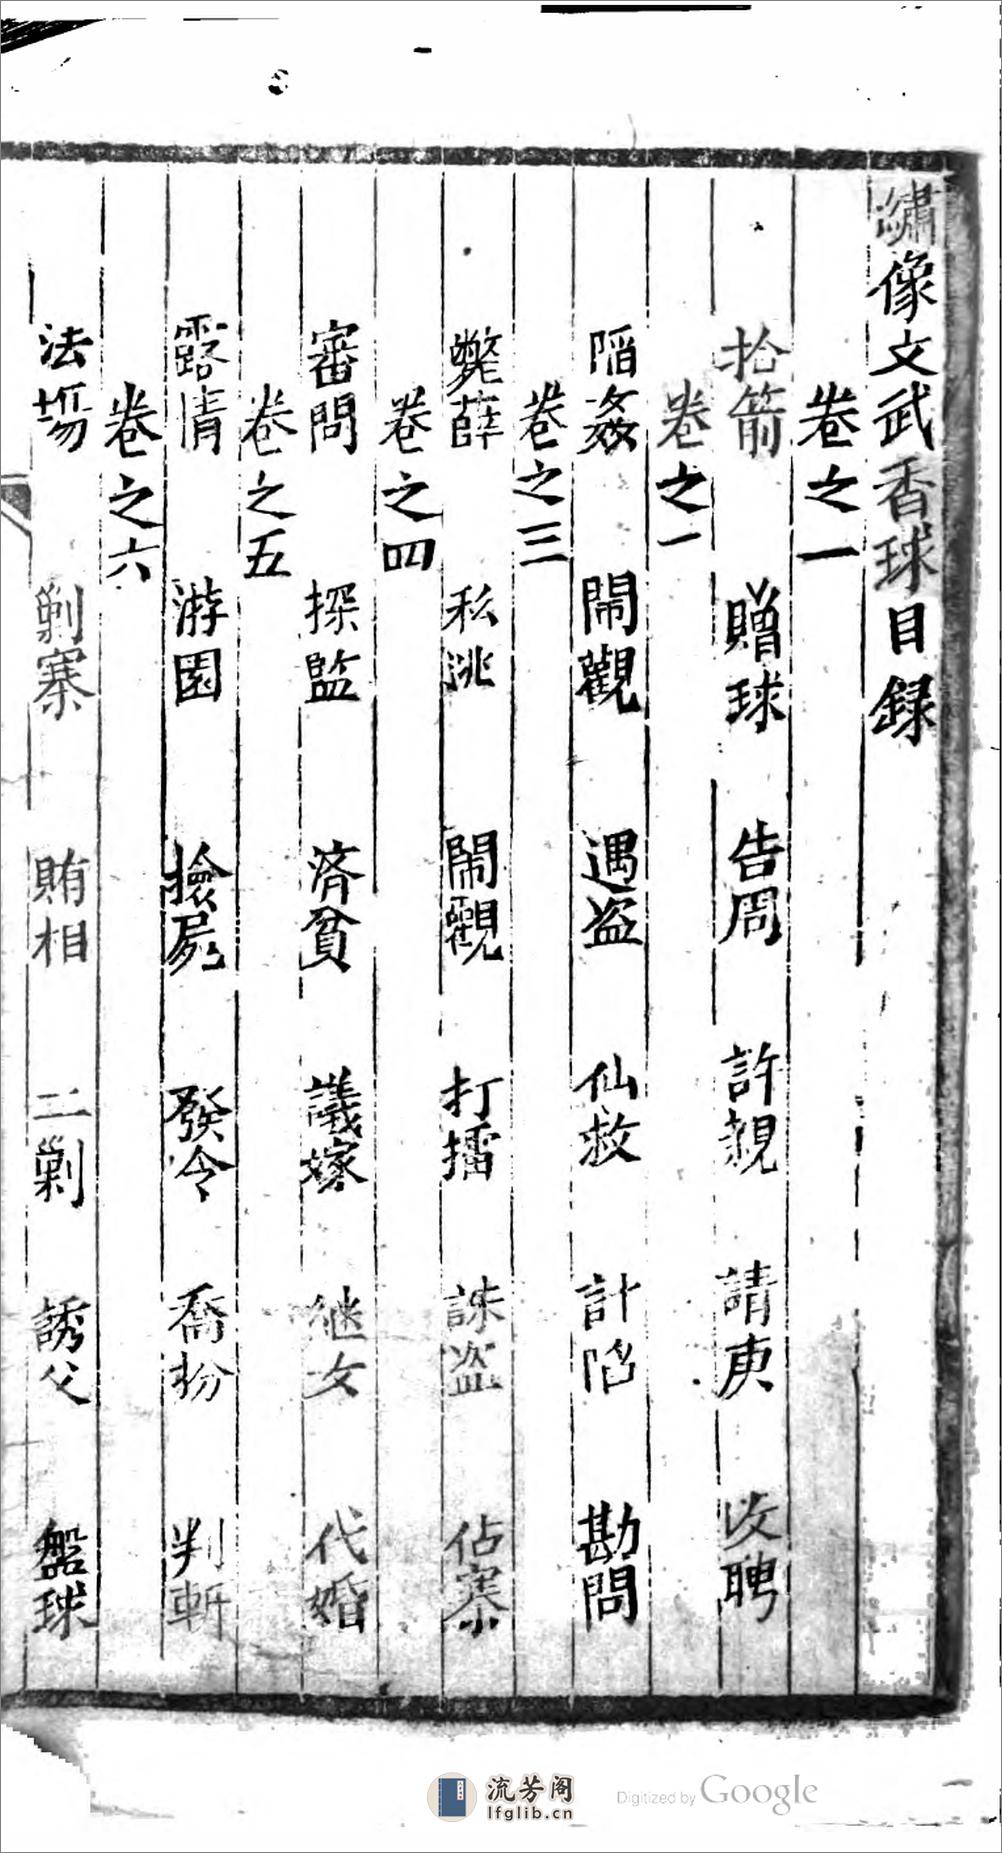 繡像文武香球目録
卷之一
拾箭 贈球 告周 許親 請庚 收聘
卷之二
陷姦 鬧觀 遇盗 仙救 計陷 勘問
卷之三
斃薛 私逃 鬧觀 打擂 誅盗 佔寨
卷之四
審問 探監 済貧 議嫁 継女 代婚
卷之五
露情 游園 撿屍 發令 喬扮 判斬
卷之六
法場 剿寨 賄相 二剿 誘父 盤球
流芳阁
lfglib.cn
Digitized by Google